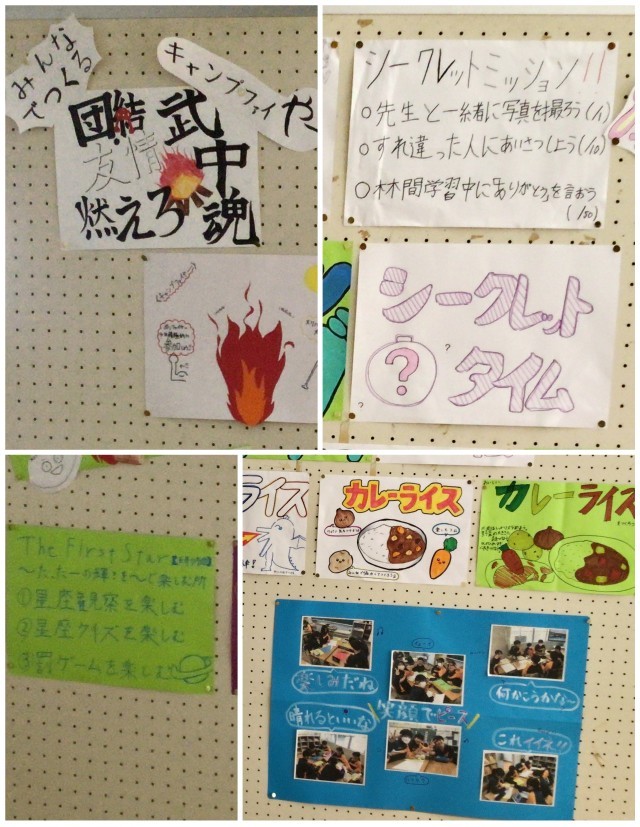 みんな
でつくる
キャンプファイヤー
団結
武
友情
中
燃えろ
魂
シークレットミッション!!
○先生と一緒に写真を撮ろう(/1)
○すれ違った人にあいさつしよう(/10)
○林間学習中に「ありがとう」を言おう
(/50)
シークレット
タイム
?
The First Star
①星座観察を楽しむ
②星座クイズを楽しむ
③罰ゲームを楽しむ
ライス
カレーライス
カレーライス
楽しみだね
何かこうかな~
晴れるといいな
笑顔でピース
これイイネ!!